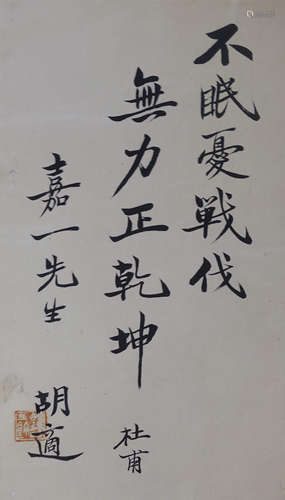 不眠憂戰伐
無力正乾坤
杜甫
嘉一先生
胡適